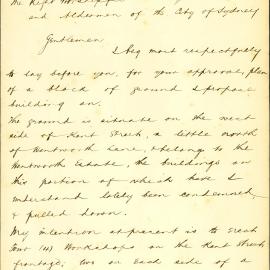 The Right Worshipful
and Aldermen of the City of Sydney
Gentlemen
I Beg most respectfully
to lay before you, for your approval, plan
of a block of ground I propose
building on.
The ground is situate on the west
side of Kent Street, a little north
of Wentworth Lane, & belongs to the
Wentworth Estate, the buildings on
this portion of which have I
understand lately been condemned,
& pulled down.
My intention at present is to erect
four (4) Workshops on the Kent Street
frontage; two on each side of a